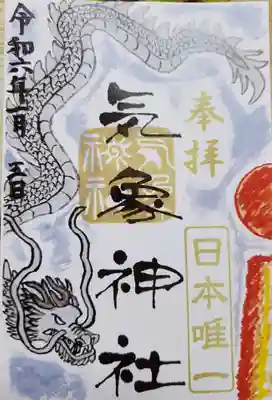 奉拝
日本唯一
気象神社
令和六年一月五日